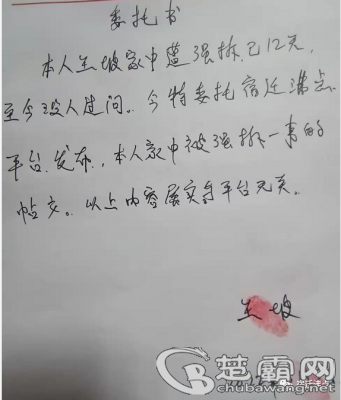 委托书
本人生坡家中遭强拆已12天,
至今没人过问。今特委托宿迁沸点
平台发布,本人家中被强拆一事的
帖文。以上内容属实与平台无关。
生坡
楚霸网
chubawang.com